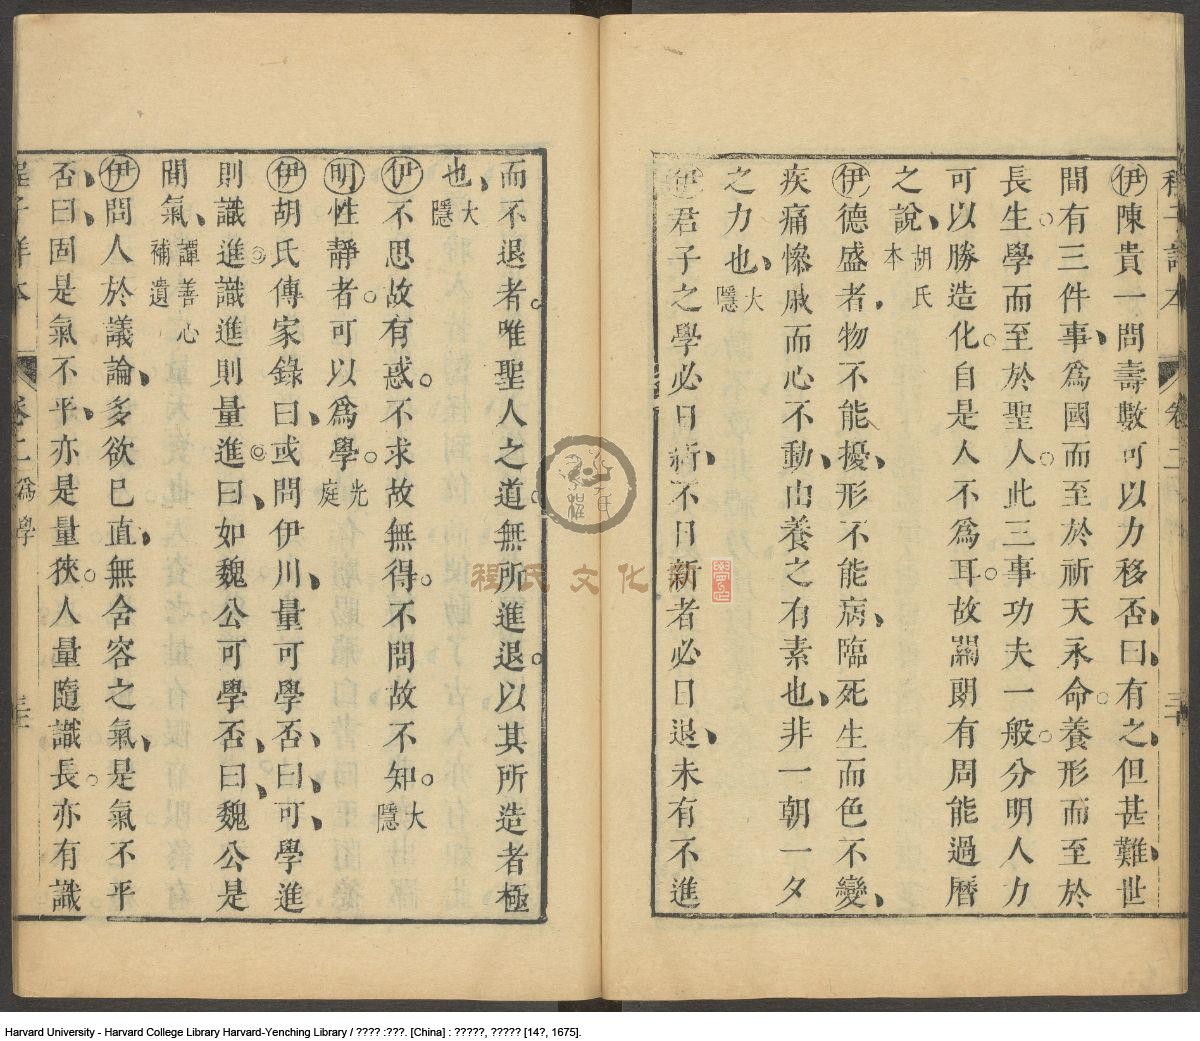 伊陳貴一問壽數可以力移否曰有之但甚難世
間有三件事爲國而至於祈天永命養形而至於
長生學而至於聖人此三事功夫一般分明人力
可以勝造化自是人不爲耳故關朗有周能過曆
之說 胡氏本
伊德盛者物不能擾形不能病臨死生而色不變
疾痛慘戚而心不動由養之有素也非一朝一夕
之力也 大隱
伊君子之學必日新不日新者必日退未有不進
而不退者唯聖人之道無所進退以其所造者極
也 大隱
伊不思故有惑不求故無得不問故不知 大隱
明性靜者可以爲學 光庭
伊胡氏傳家錄曰或問伊川量可學否曰可學進
則識進識進則量進曰如魏公可學否曰魏公是
間氣 譚善心補遺
伊問人於議論多欲已直無含容之氣是氣不平
否曰固是氣不平亦是量狹人量隨識長亦有識
卷二 爲學
程氏文化
Harvard University - Harvard College Library Harvard-Yenching Library / ???? :???. [China] : ?????, ????? [14?, 1675].